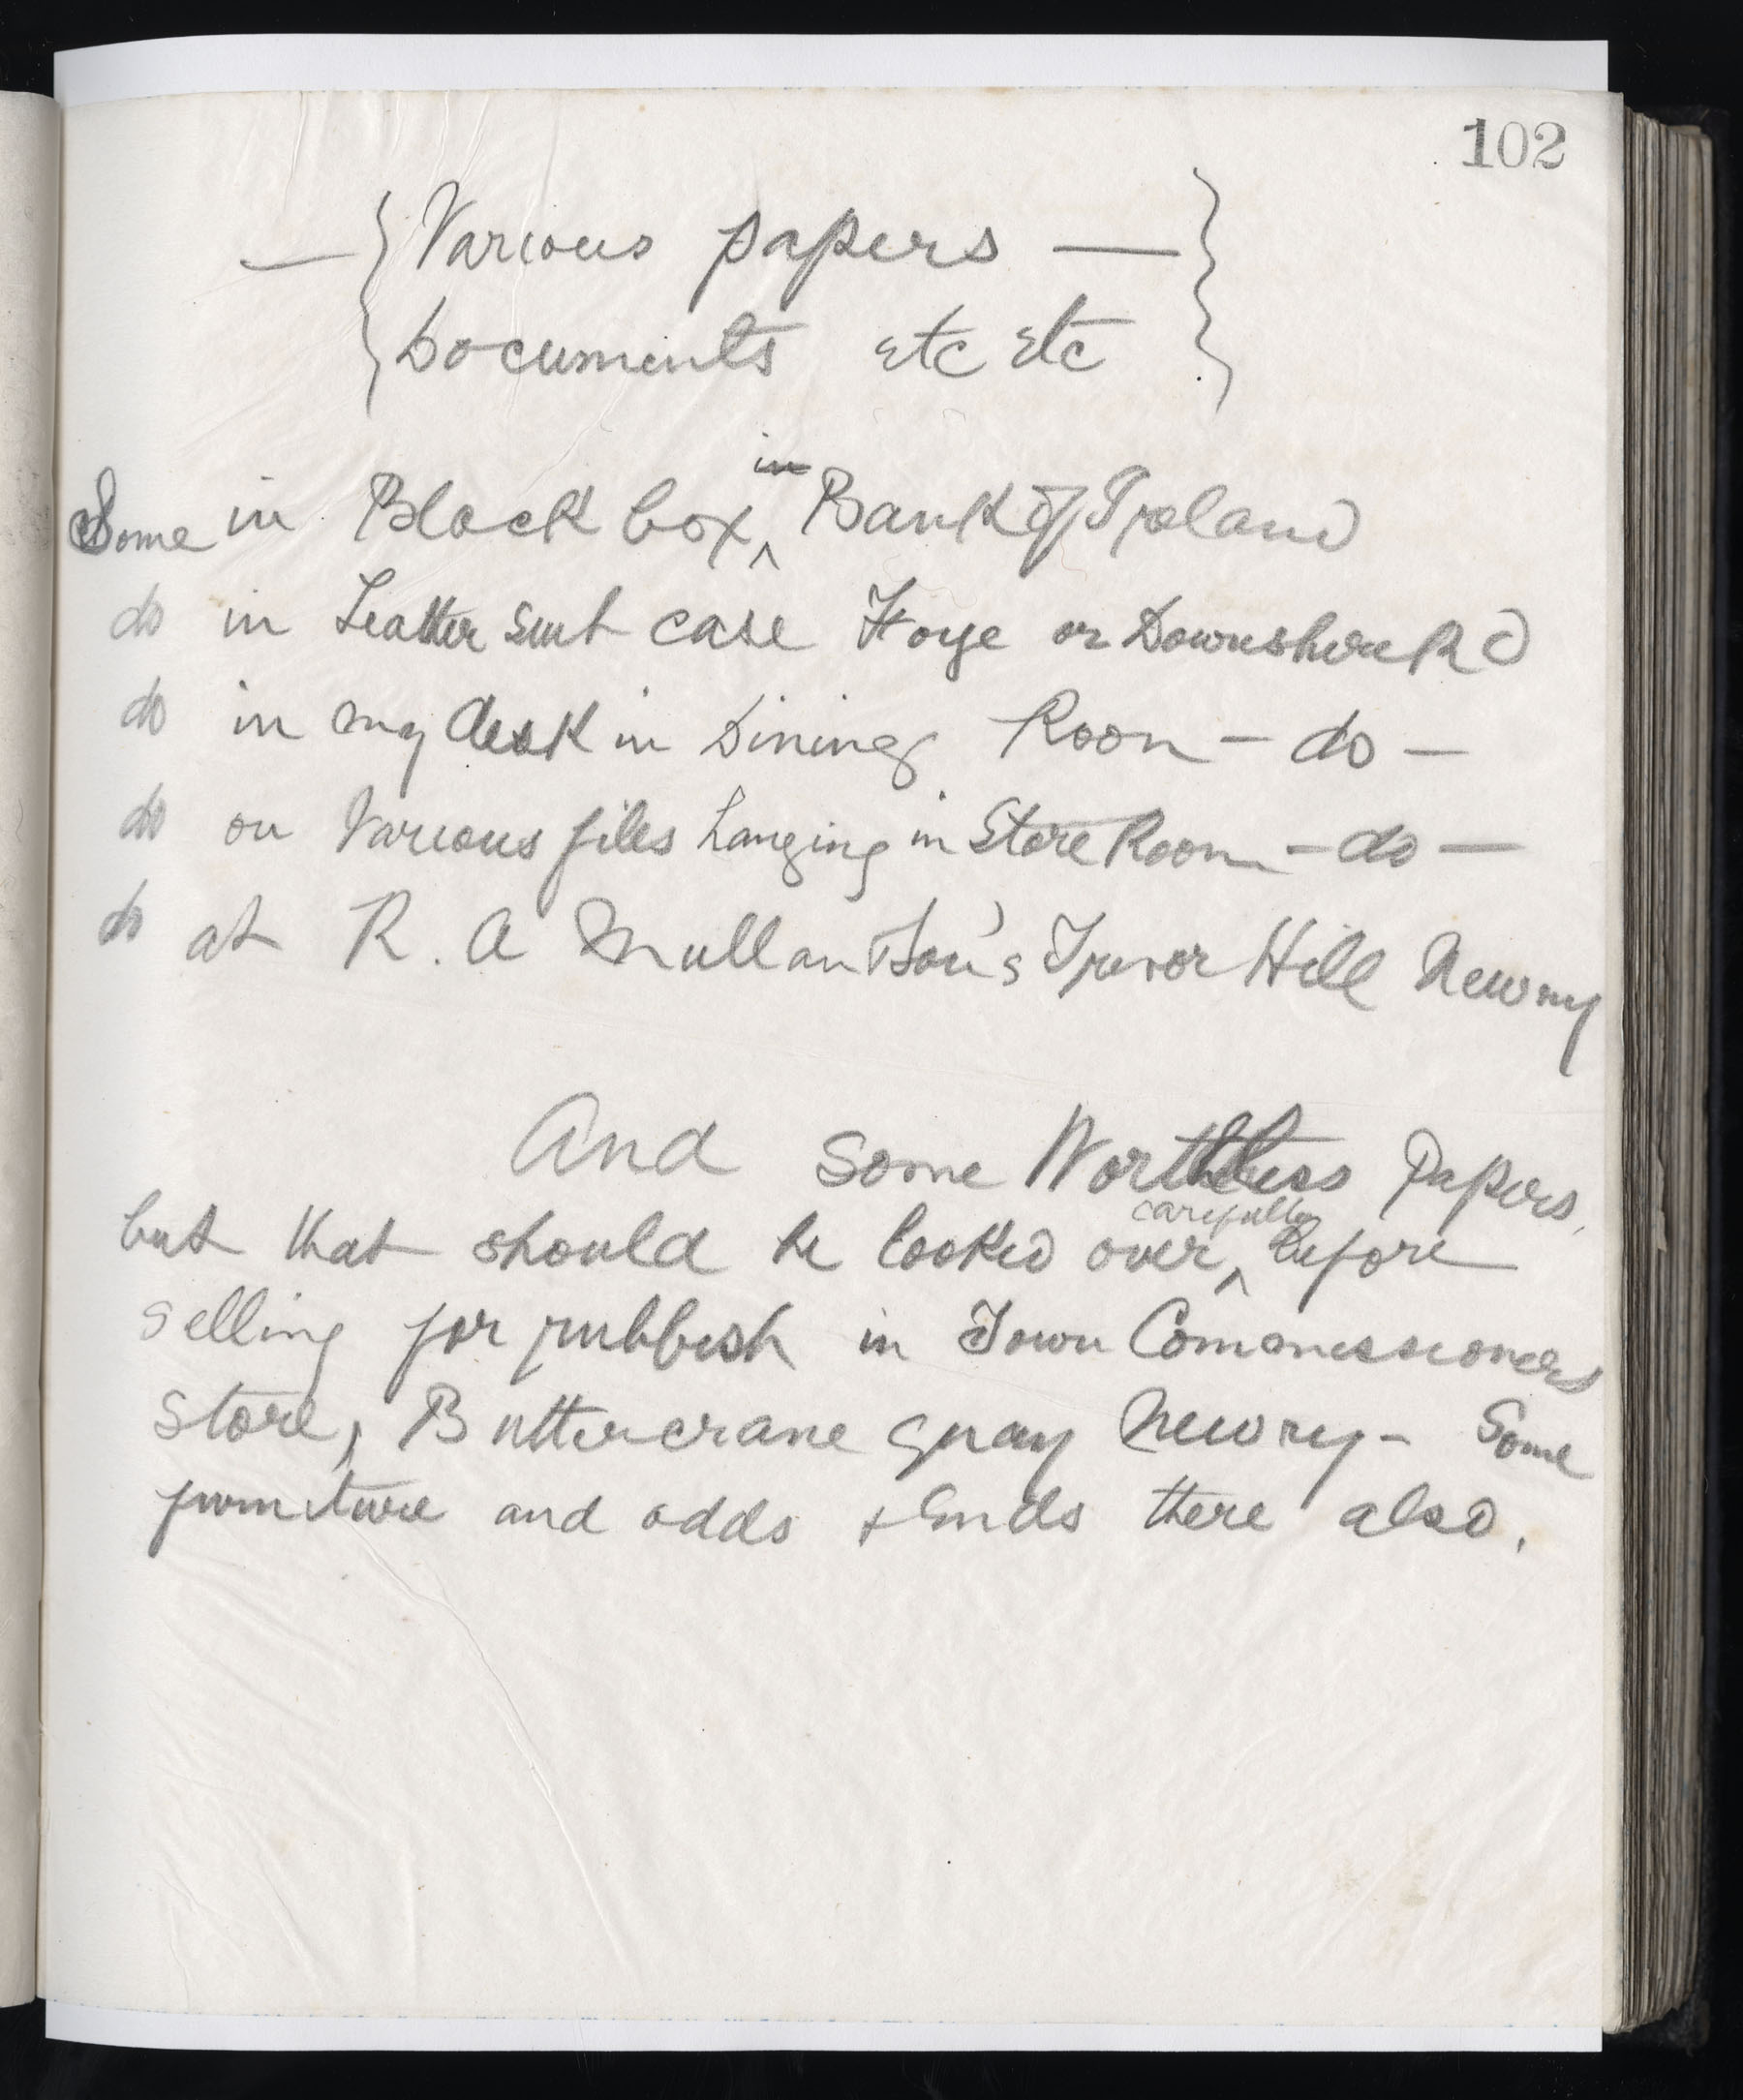 102
— Various papers —
Documents etc etc
Some in Black box ^in Bank of Ireland
do in Leather suit case Downshire Rd
do in my desk in Dining Room — do —
do on Various files hanging in Store Room — do —
do at R. A Mullan & Son's Trevor Hill Newry
And some Worthless Papers,
but that should be looked over ^carefully before
selling for rubbish in Town Commissioners
store, Buttercrane quay Newry - Some
furniture and odds + Ends there also.